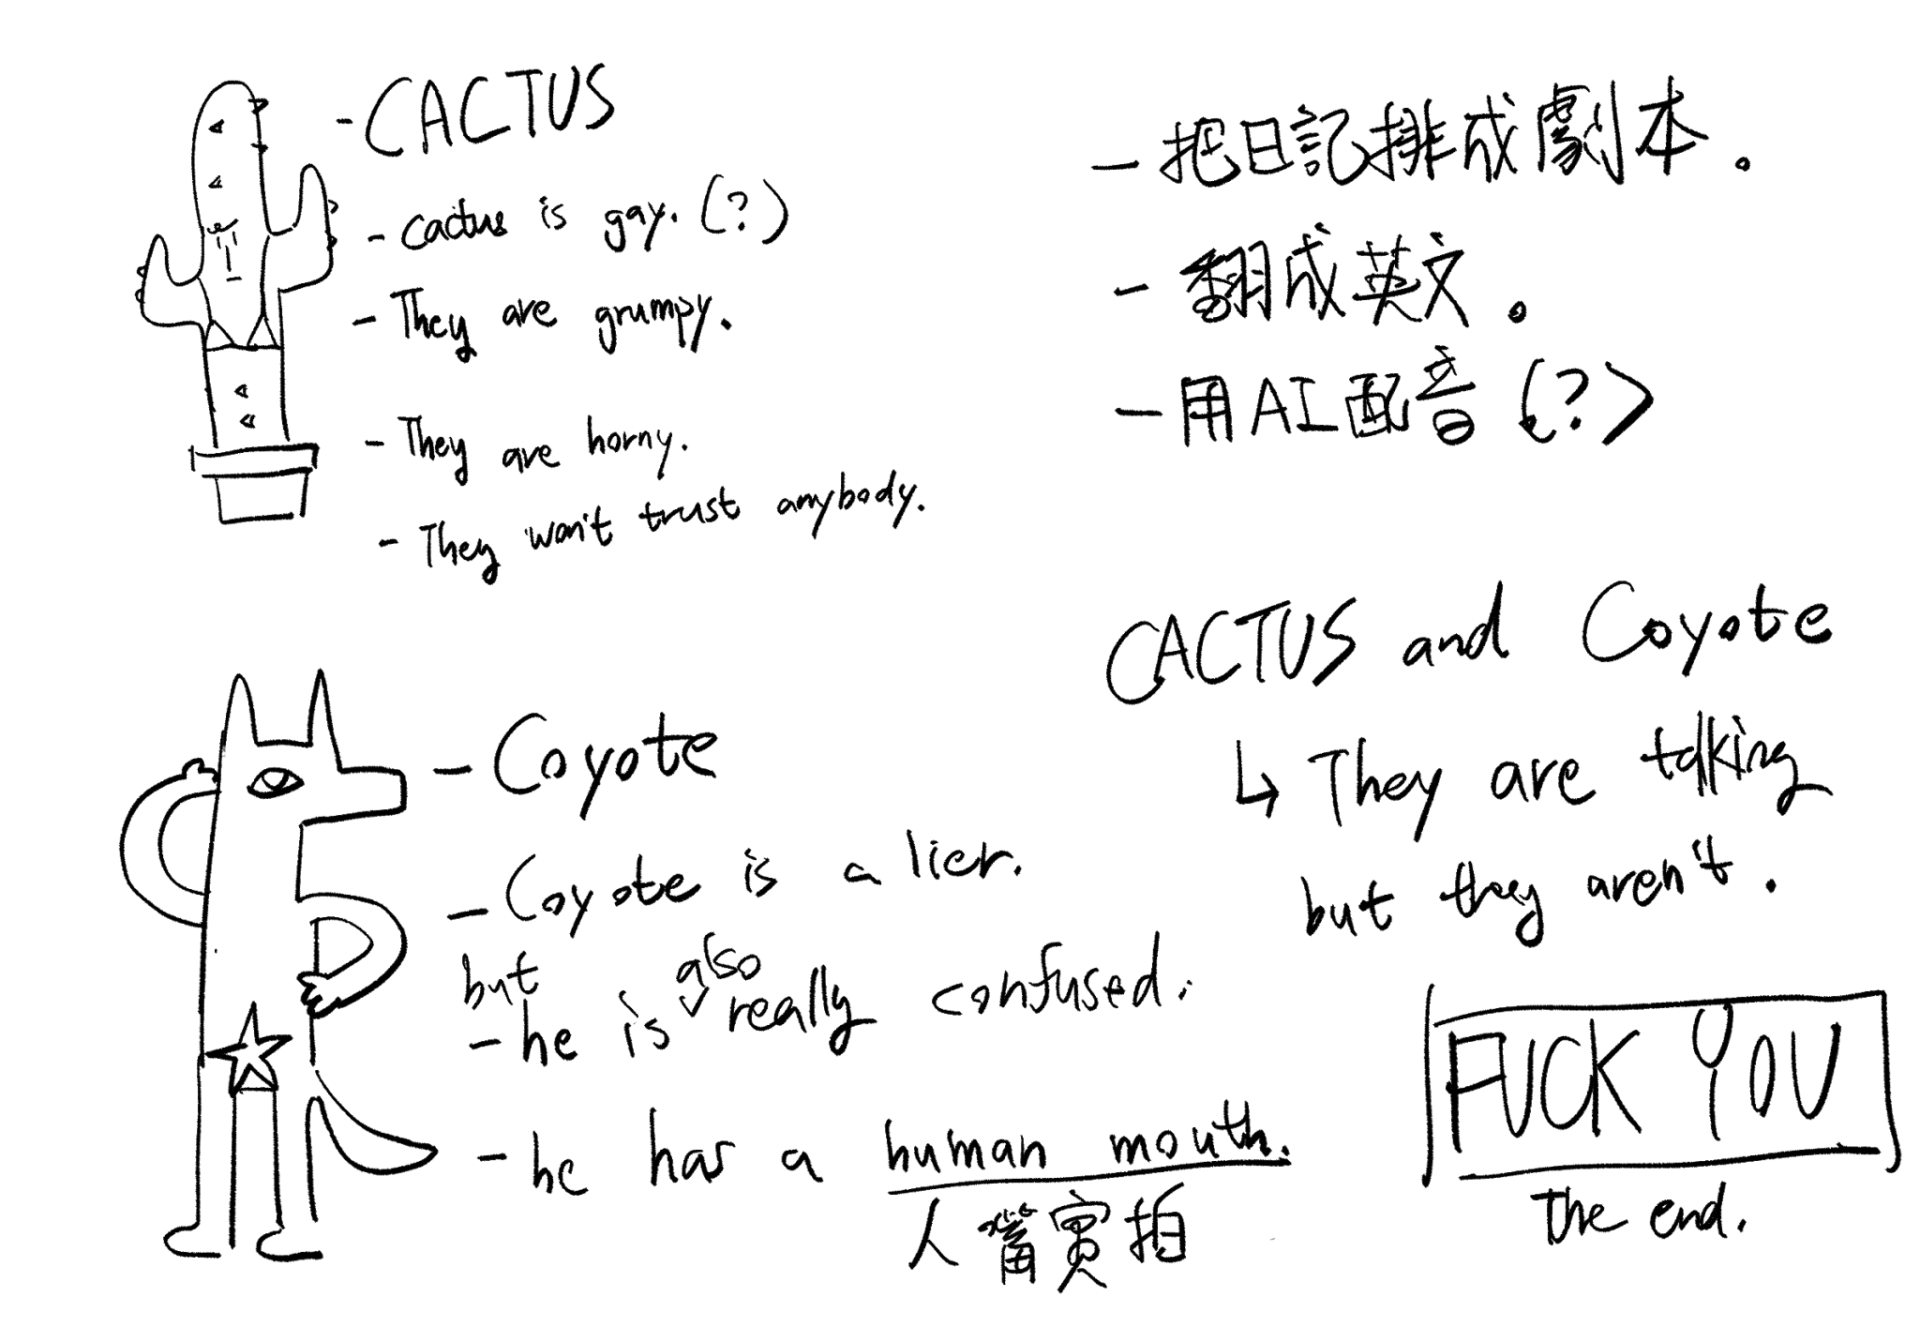 - CACTUS
- cactus is gay. (?)
- They are grumpy.
- They are horny.
- They won't trust anybody.
- 把日記排成劇本。
- 翻成英文。
- 用AI配音(?)
- Coyote
- Coyote is a lier.
but
- he is also really confused.
- he has a human mouth.
人嘴實拍
CACTUS and Coyote
↳ They are talking
but they aren't.
FUCK YOU
The end.